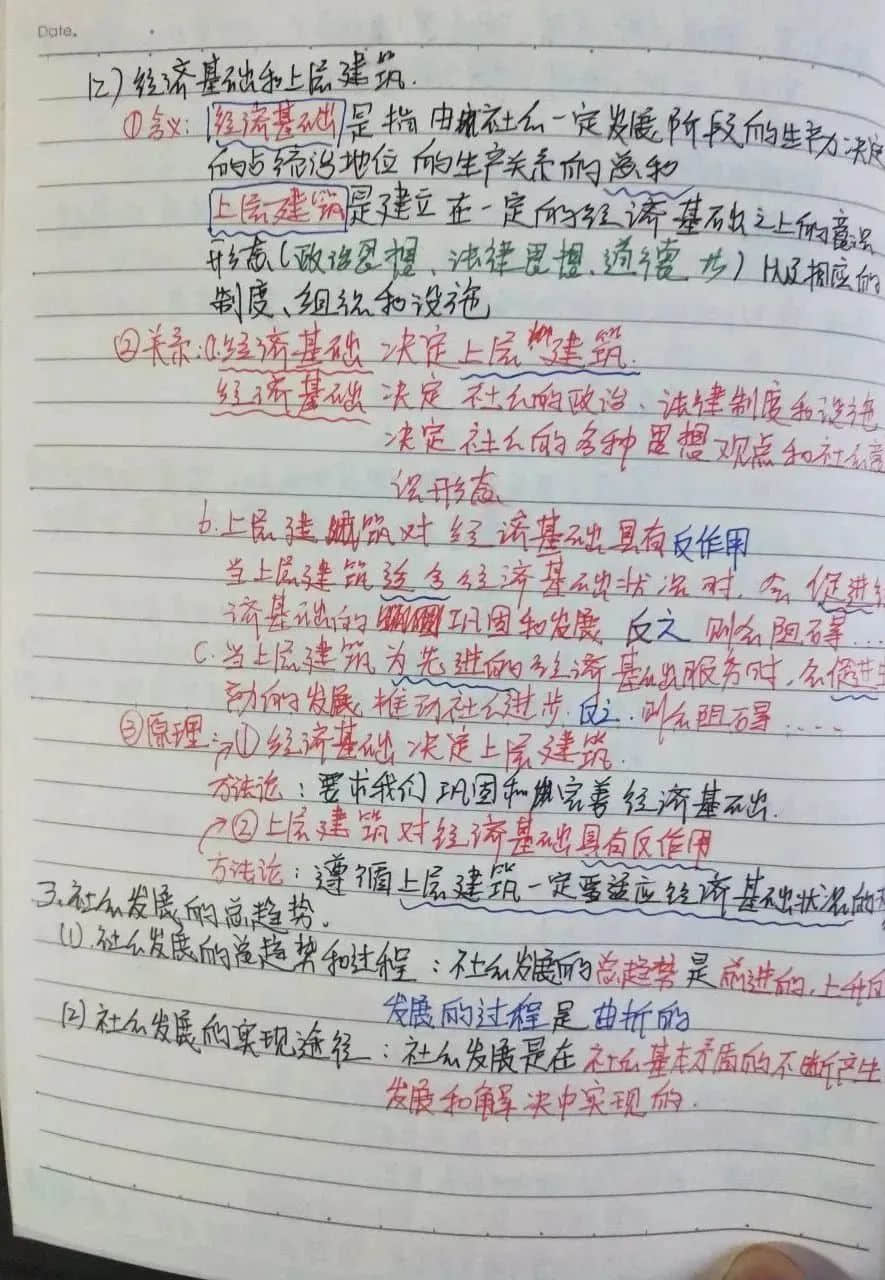 Date.
(2) 经济基础和上层建筑.
①含义: 经济基础是指由社会一定发展阶段的生产力决定
的占统治地位的生产关系的总和
上层建筑是建立在一定的经济基础之上的意识
形态(政治思想、法律思想、道德等)以及相应的
制度、组织和设施
②关系:a.经济基础决定上层建筑.
经济基础决定社会的政治、法律制度和设施
决定社会的各种思想观点和社会意
识形态
b.上层建筑对经济基础具有反作用
当上层建筑适合经济基础状况时,会促进经
济基础的巩固和发展 反之则会阻碍...
c.当上层建筑为先进的经济基础服务时,会促进生
动的发展,推动社会进步.反之.则会阻碍....
③原理:→①经济基础决定上层建筑.
方法论:要求我们巩固和完善经济基础.
→②上层建筑对经济基础具有反作用
方法论:遵循上层建筑一定要适应经济基础状况的
3.社会发展的总趋势.
(1).社会发展的总趋势和过程:社会发展的总趋势是前进的,上升的
发展的过程是曲折的
(2)社会发展的实现途径:社会发展是在社会基本矛盾的不断产生
发展和解决中实现的.